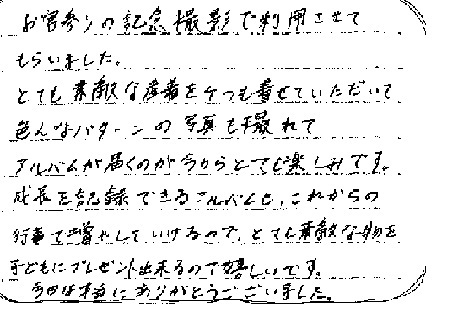 お宮参りの記念撮影で利用させて
もらいました。
とても素敵な産着を4つも着せていただいて
色んなパターンの写真も撮れて
アルバムが届くのが今からとても楽しみです。
成長を記録できるアルバムも、これからの
行事で増やしていけるので、とても素敵な物を
子どもにプレゼント出来るので嬉しいです。
今日は本当にありがとうございました。